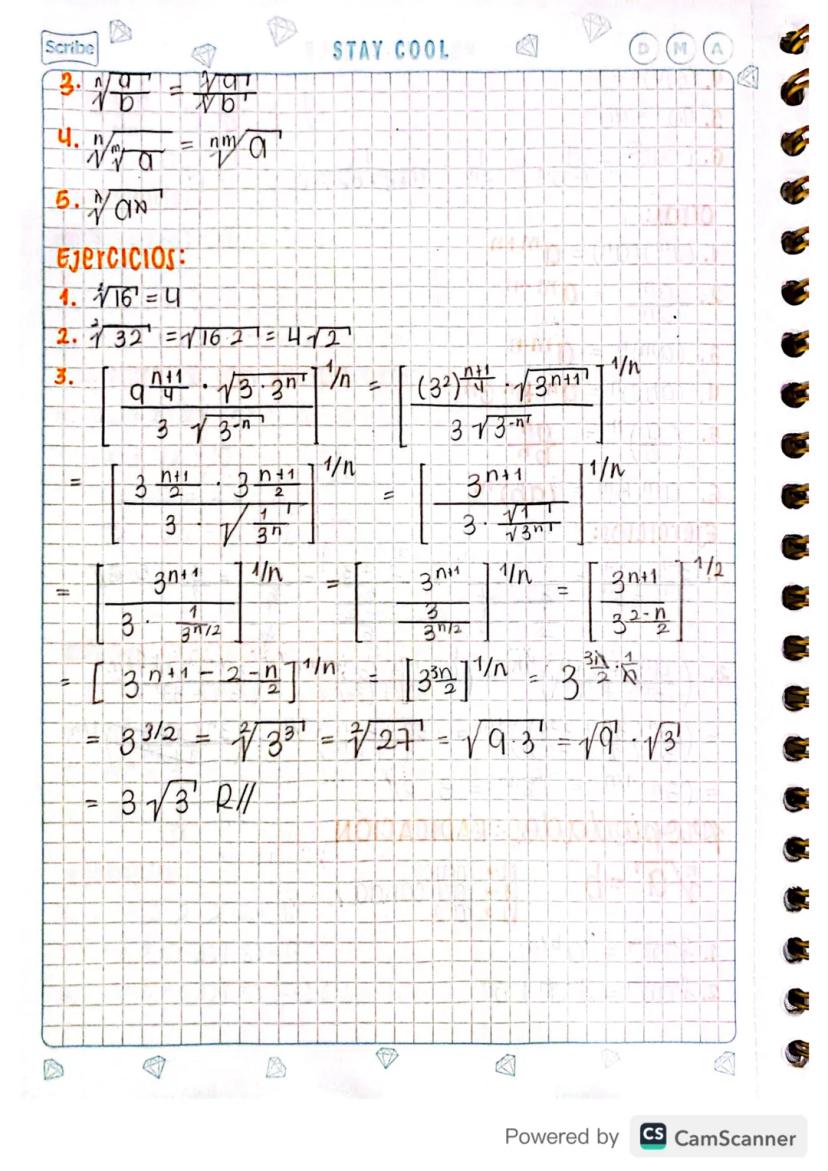 Scribe STAY COOL D M A
3. ⁿ√(a/b) = ⁿ√a / ⁿ√b
4. ⁿ√(ᵐ√a) = ⁿᵐ√a
5. ⁿ√aⁿ
Ejercicios:
1. ²√16 = 4
2. ²√32 = √16·2 = 4√2
3. [ (9^((n+1)/4) · √(3·3ⁿ)) / (3 √(3⁻ⁿ)) ]^(1/n) = [ ((3²)^((n+1)/4) · √(3ⁿ⁺¹)) / (3√(3⁻ⁿ)) ]^(1/n)
= [ (3^((n+1)/2) · 3^((n+1)/2)) / (3 · √(1/3ⁿ)) ]^(1/n) = [ 3ⁿ⁺¹ / (3 · √1/√(3ⁿ)) ]^(1/n)
= [ 3ⁿ⁺¹ / (3 · 1/3^(n/2)) ]^(1/n) = [ 3ⁿ⁺¹ / (3/3^(n/2)) ]^(1/n) = [ 3ⁿ⁺¹ / 3^((2-n)/2) ]^(1/2)
= [ 3^(n+1 - (2-n)/2) ]^(1/n) = [3^(3n/2)]^(1/n) = 3^(3n/2 · 1/n)
= 3^(3/2) = ²√3³ = ²√27 = √9·3 = √9 · √3
= 3√3 R//
Powered by CS CamScanner